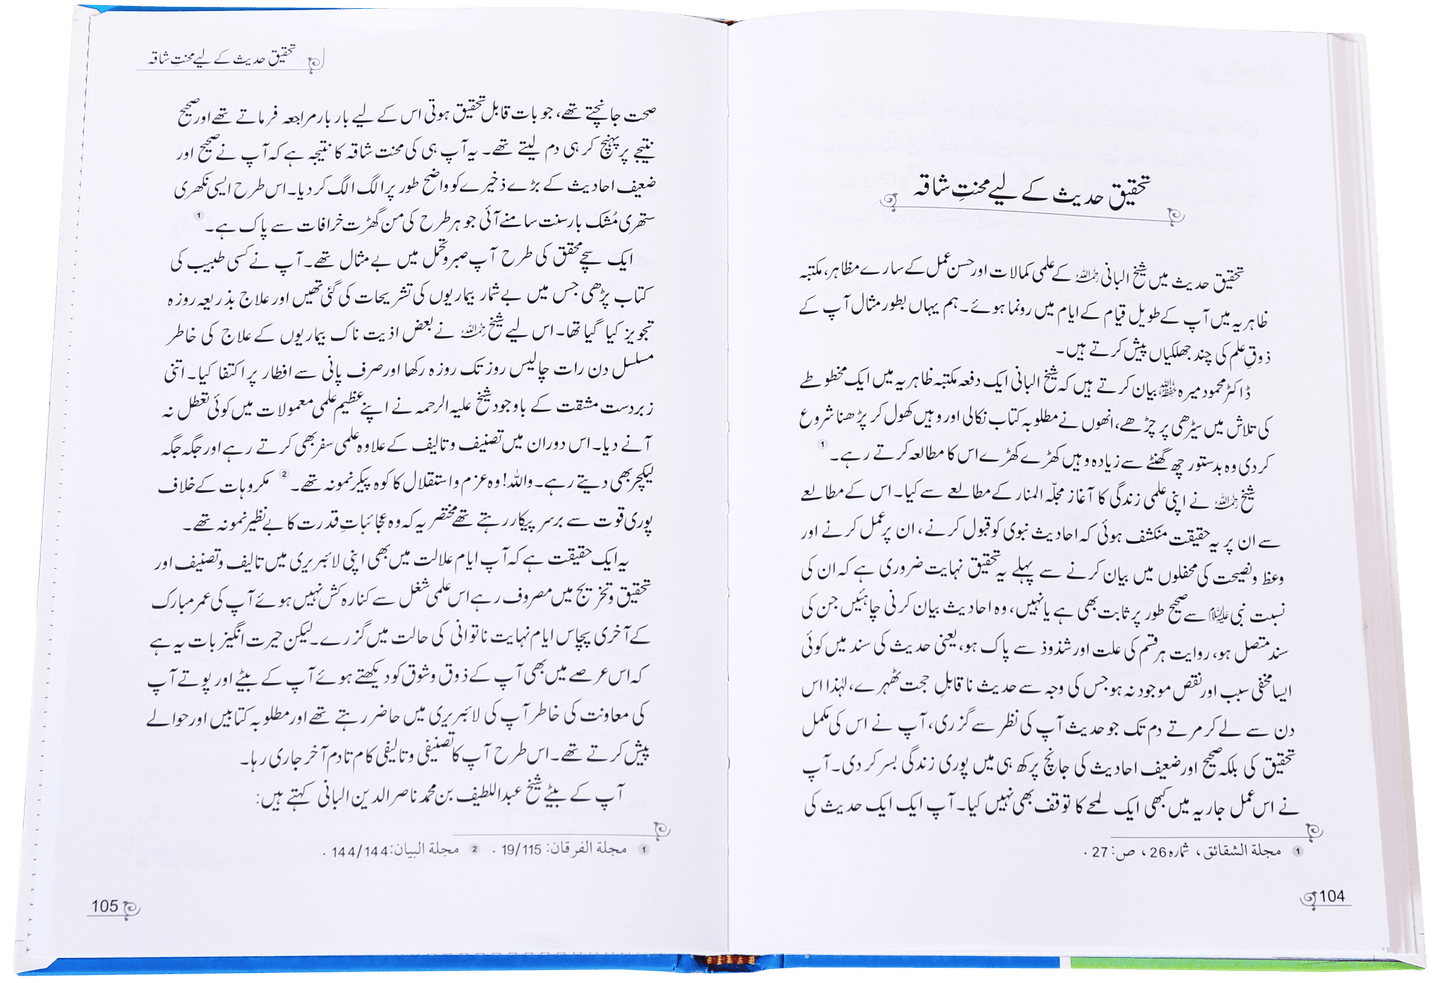 تحقیق حدیث کے لیے محنتِ شاقہ
تحقیق حدیث میں شیخ البانی رحمہ اللہ کے علمی کمالات اور حسن عمل کے سارے مظاہر، مکتبہ
ظاہریہ میں آپ کے طویل قیام کے ایام میں رونما ہوئے۔ ہم یہاں بطور مثال آپ کے
ذوقِ علم کی چند جھلکیاں پیش کرتے ہیں۔
ڈاکٹر محمود میرہ حفظہ اللہ بیان کرتے ہیں کہ شیخ البانی ایک دفعہ مکتبہ ظاہریہ میں ایک مخطوطے
کی تلاش میں سیڑھی پر چڑھے، انھوں نے مطلوبہ کتاب نکالی اور وہیں کھول کر پڑھنا شروع
کر دی وہ بدستور چھ گھنٹے سے زیادہ وہیں کھڑے کھڑے اس کا مطالعہ کرتے رہے۔ 1
شیخ رحمہ اللہ نے اپنی علمی زندگی کا آغاز مجلّہ المنار کے مطالعے سے کیا۔ اس کے مطالعے
سے ان پر یہ حقیقت منکشف ہوئی کہ احادیث نبوی کو قبول کرنے، ان پر عمل کرنے اور
وعظ و نصیحت کی محفلوں میں بیان کرنے سے پہلے یہ تحقیق نہایت ضروری ہے کہ ان کی
نسبت نبی ﷺ سے صحیح طور پر ثابت بھی ہے یا نہیں، وہ احادیث بیان کرنی چاہئیں جن کی
سند متصل ہو، روایت ہر قسم کی علت اور شذوذ سے پاک ہو، یعنی حدیث کی سند میں کوئی
ایسا مخفی سبب اور نقص موجود نہ ہو جس کی وجہ سے حدیث ناقابلِ حجت ٹھہرے، لہٰذا اس
دن سے لے کر مرتے دم تک جو حدیث آپ کی نظر سے گزری، آپ نے اس کی مکمل
تحقیق کی بلکہ صحیح اور ضعیف احادیث کی جانچ پرکھ ہی میں پوری زندگی بسر کر دی۔ آپ
نے اس عمل جاریہ میں کبھی ایک لمحے کا توقف بھی نہیں کیا۔ آپ ایک ایک حدیث کی
1 مجلة الشقائق، شماره 26، ص: 27.
104
تحقیق حدیث کے لیے محنتِ شاقہ
صحت جانچتے تھے، جو بات قابل تحقیق ہوتی اس کے لیے بار بار مراجعہ فرماتے تھے اور صحیح
نتیجے پر پہنچ کر ہی دم لیتے تھے۔ یہ آپ ہی کی محنت شاقہ کا نتیجہ ہے کہ آپ نے صحیح اور
ضعیف احادیث کے بڑے ذخیرے کو واضح طور پر الگ الگ کر دیا۔ اس طرح ایسی نکھری
ستھری مُشک بار سنت سامنے آئی جو ہر طرح کی من گھڑت خرافات سے پاک ہے۔ 1
ایک سچے محقق کی طرح آپ صبر و تحمل میں بے مثال تھے۔ آپ نے کسی طبیب کی
کتاب پڑھی جس میں بے شمار بیماریوں کی تشریحات کی گئی تھیں اور علاج بذریعہ روزہ
تجویز کیا گیا تھا۔ اس لیے شیخ رحمہ اللہ نے بعض اذیت ناک بیماریوں کے علاج کی خاطر
مسلسل دن رات چالیس روز تک روزہ رکھا اور صرف پانی سے افطار پر اکتفا کیا۔ اتنی
زبردست مشقت کے باوجود شیخ علیہ الرحمہ نے اپنے عظیم علمی معمولات میں کوئی تعطل نہ
آنے دیا۔ اس دوران میں تصنیف و تالیف کے علاوہ علمی سفر بھی کرتے رہے اور جگہ جگہ
لیکچر بھی دیتے رہے۔ واللہ! وہ عزم و استقلال کا کوہ پیکر نمونہ تھے۔ 2 مکروہات کے خلاف
پوری قوت سے برسر پیکار رہتے تھے مختصر یہ کہ وہ عجائباتِ قدرت کا بے نظیر نمونہ تھے۔
یہ ایک حقیقت ہے کہ آپ ایام علالت میں بھی اپنی لائبریری میں تالیف و تصنیف اور
تحقیق و تخریج میں مصروف رہے اس علمی شغل سے کنارہ کش نہیں ہوئے آپ کی عمر مبارک
کے آخری پچاس ایام نہایت ناتوانی کی حالت میں گزرے۔ لیکن حیرت انگیز بات یہ ہے
کہ اس عرصے میں بھی آپ کے ذوق و شوق کو دیکھتے ہوئے آپ کے بیٹے اور پوتے آپ
کی معاونت کی خاطر آپ کی لائبریری میں حاضر رہتے تھے اور مطلوبہ کتابیں اور حوالے
پیش کرتے تھے۔ اس طرح آپ کا تصنیفی و تالیفی کام تادم آخر جاری رہا۔
آپ کے بیٹے شیخ عبد اللطیف بن محمد ناصر الدین البانی کہتے ہیں:
1 مجلة الفرقان: 19/115. 2 مجلة البيان: 144/144.
105